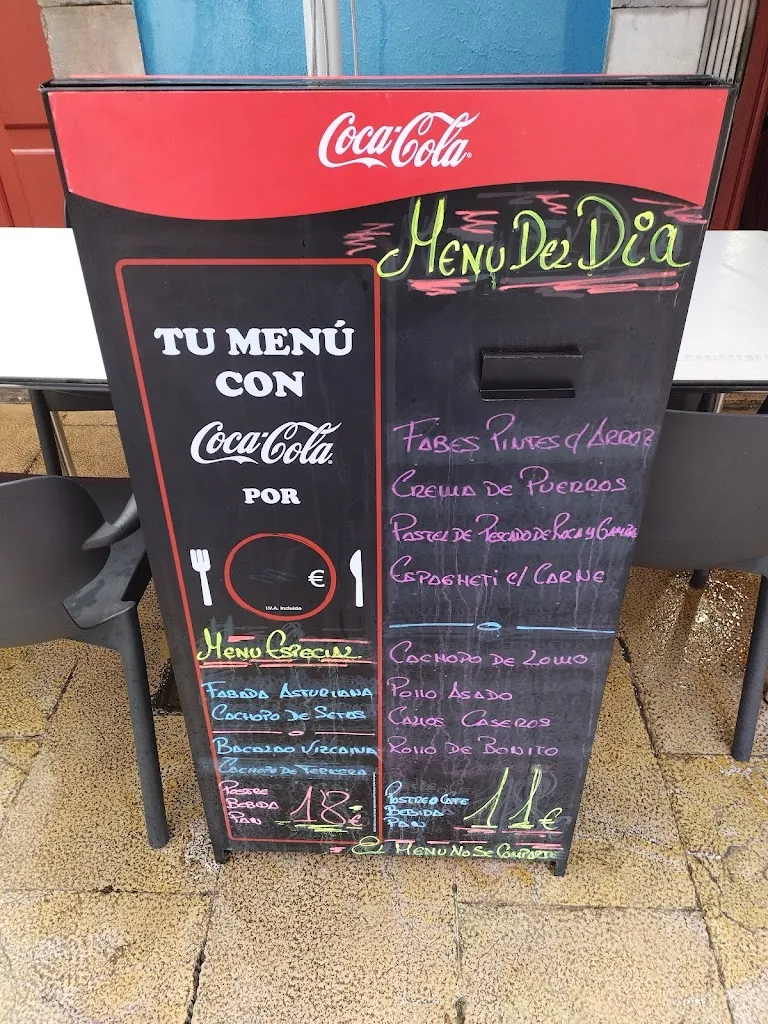 Coca-Cola
MENU DEL DIA
TU MENÚ
CON
Coca-Cola
POR
€
I.V.A. incluido
FABES PINTES C/ ARROZ
CREMA DE PUERROS
PASTEL DE PESCADO DE ROCA Y GAMBAS
ESPAGHETI C/ CARNE
CACHOPO DE LOMO
POLLO ASADO
CALLOS CASEROS
ROLLO DE BONITO
POSTRE O CAFE
BEBIDA
PAN
11€
MENU ESPECIAL
FABADA ASTURIANA
CACHOPO DE SETAS
BACALAO VIZCAINA
CACHOPO DE TERNERA
POSTRE
BEBIDA
PAN
18€
EL MENU NO SE COMPARTE